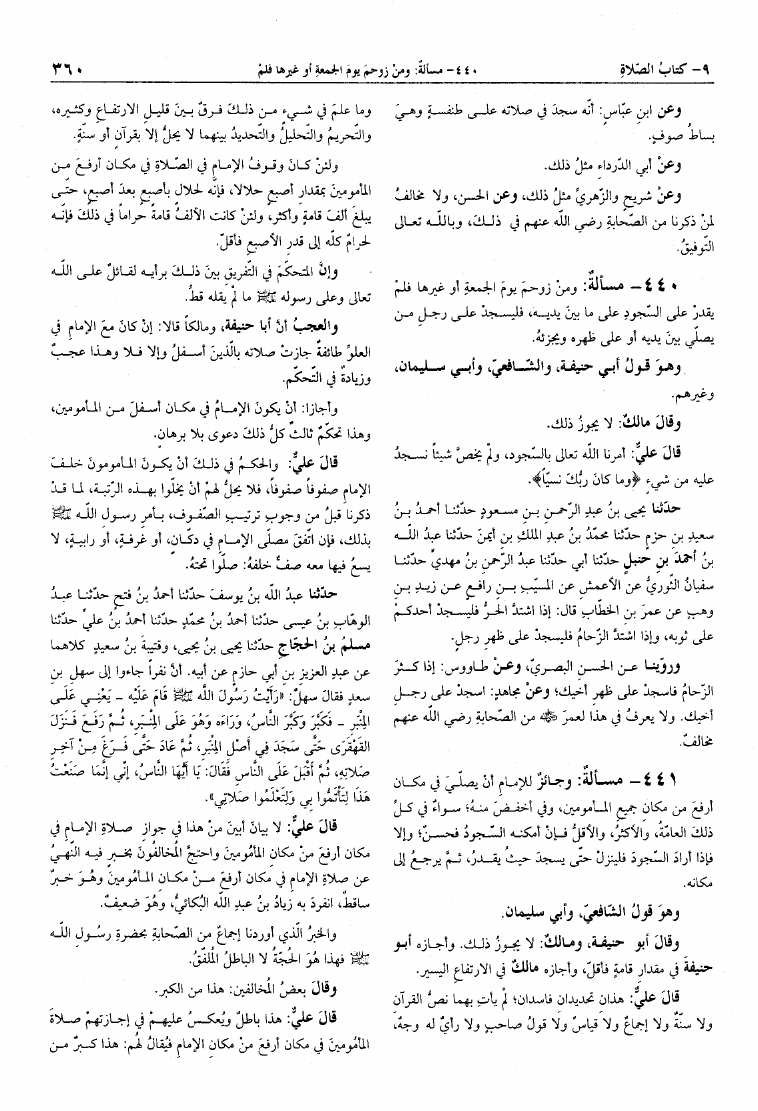 ٩- كتابُ الصّلاةِ
٤٤٠- مسألةٌ: ومنْ زوحمَ يومَ الجمعةِ أو غيرها فلمْ
٣٦٠
وعن ابنِ عبّاسٍ: أنّه سجدَ في صلاته علـى طنفسـةٍ وهـيَ
بساطُ صوفٍ.
وعنْ أبي الدّرداءِ مثلُ ذلك.
وعنْ شريحٍ والزّهريِّ مثلُ ذلك، وعن الحسنِ، ولا مخالفَ
لمنْ ذكرنا من الصّحابةِ رضي اللّه عنهم في ذلـكَ، وباللّـه تعـالى
التّوفيقُ.
٤٤٠- مسألةٌ: ومنْ زوحمَ يومَ الجمعةِ أو غيرها فلمْ
يقدرْ على السّجودِ على ما بينَ يديـه، فليسـجدْ علـى رجـلِ مـن
يصلّي بينَ يديه أو على ظهره ويجزئهُ.
وهـوَ قـولُ أبـي حنيفـةَ، والشّـافعيِّ، وأبـي سـليمان،
وغيرهم.
وقالَ مالكٌ: لا يجوزُ ذلك.
قالَ عليٌّ: أمرنا اللّه تعالى بالسّجودِ، ولمْ يخصَّ شيئاً نسـجدُ
عليه من شيءٍ ﴿وما كانَ ربُّكَ نسيّاً﴾.
حدّثنا يحيى بنُ عبدِ الرّحمـنِ بـنِ مسـعودٍ حدّثنـا أحمـدُ بـنُ
سعيدِ بنِ حزمٍ حدّثنا محمّدُ بنُ عبدِ الملكِ بنِ أيمنَ حدّثنا عبدُ اللّـه
بنُ أحمدَ بنِ حنبلٍ حدّثنا أبي حدّثنا عبدُ الرّحمنِ بنُ مهديٍّ حدّثنـا
سفيانُ الثّوريُّ عن الأعمشِ عن المسيّبِ بـنِ رافـعٍ عـن زيـدِ بـنِ
وهبٍ عن عمرَ بنِ الخطّابِ قال: إذا اشتدَّ الحـرُّ فليسـجدْ أحدكـمْ
على ثوبه، وإذا اشتدَّ الزّحامُ فليسجدْ على ظهرِ رجلٍ.
ورويّنـا عـن الحسـنِ البصـريِّ، وعـنْ طـاووسٍ: إذا كـثرَ
الزّحامُ فاسجدْ على ظهرِ أخيك؛ وعنْ مجاهدٍ: اسجد على رجـلِ
أخيك. ولا يعرفُ في هذا لعمرَ ﷺ من الصّحابةِ رضي اللّه عنهم
مخالفٌ.
٤٤١- مسـألةٌ: وجـائزٌ للإمـامِ أنْ يصلّـيَ في مكـان
أرفعَ من مكان جميعِ المـأمومين، وفي أخفـضَ منـهُ؛ سـواءٌ في كـلِّ
ذلك العامّةُ، والأكثرُ، والأقلُّ فـإنْ أمكنـه السّـجودُ فحسـنٌ؛ وإلا
فإذا أرادَ السّجودَ فلينزلْ حتّى يسجدَ حيثُ يقـدرُ، ثـمَّ يرجـعُ إلى
مكانه.
وهوَ قولُ الشّافعيِّ، وأبي سليمان.
وقالَ أبو حنيفـة، ومـالكٌ: لا يجـوزُ ذلـك. وأجـازه أبـو
حنيفةَ في مقدارِ قامةٍ فأقلَّ، وأجازه مالكٌ في الارتفاعِ اليسير.
قالَ عليٌّ: هذان تحديدان فاسدان؛ لم يأتِ بهما نصُّ القرآنِ
ولا سنّةٌ ولا إجماعٌ ولا قياسٌ ولا قولُ صاحبٍ ولا رأيٌ له وجهٌ،
وما علمَ في شـيءٍ مـن ذلـكَ فـرقٌ بـينَ قليلِ الارتفـاعِ وكثـيره،
والتّحريمُ والتّحليلُ والتّحديدُ بينهما لا يحلُّ إلا بقرآنٍ أو سنّةٍ.
ولئنْ كـانَ وقـوفُ الإمـامِ في الصّـلاةِ في مكـانٍ أرفـعَ مـن
المأمومينَ بمقدارِ أصبعٍ حلالا، فإنّه لحلال بأصبعٍ بعدَ أصبعٍ، حتّـى
يبلغَ ألفَ قامةٍ وأكثر، ولئنْ كانت الألفُ قامةً حراماً في ذلكَ فإنّـه
لحرامٌ كلّه إلى قدرِ الأصبعِ فأقلّ.
وإنَّ المتحكّمَ في التّفريقِ بينَ ذلـكَ برأيـه لقـائلٌ علـى اللّـه
تعالى وعلى رسوله ﷺ ما لمْ يقله قطُّ.
والعجبُ أنَّ أبـا حنيفةَ، ومالكاً قالا: إنْ كانَ معَ الإمامِ في
العلوِّ طائفةٌ جازتْ صلاته بالّذينَ أسـفلُ وإلا فـلا وهـذا عجـبٌ
وزيادةٌ في التّحكّم.
وأجازا: أنْ يكونَ الإمـامُ في مكـان أسـفلَ مـن المـأمومين،
وهذا تحكّمٌ ثالثٌ كلُّ ذلكَ دعوى بلا برهانٍ.
قالَ عليٌّ: والحكـمُ في ذلـكَ أنْ يكـونَ المـأمومونَ خلـفَ
الإمامِ صفوفاً صفوفاً، فلا يحلُّ لهمْ أنْ يخلّوا بهـذه الرّتبـة، لمـا قـدْ
ذكرنا قبلُ من وجوبِ ترتيبِ الصّفـوف، بـأمرِ رسـولِ اللّـه ﷺ
بذلك، فإن اتّفقَ مصلّى الإمـامِ في دكّـانٍ، أو غرفـةٍ، أو رابيـةٍ، لا
يسعُ فيها معه صفٌّ خلفهُ: صلّوا تحتهُ.
حدّثنا عبدُ اللّه بنُ يوسفَ حدّثنا أحمدُ بـنُ فتـحٍ حدّثنـا عبـدُ
الوهّابِ بنُ عيسى حدّثنا أحمدُ بنُ محمّدٍ حدّثنا أحمدُ بنُ عليٍّ حدّثنا
مسلمُ بنُ الحجّاجِ حدّثنا يحيى بنُ يحيى، وقتيبةُ بنُ سعيدٍ كلاهمـا
عن عبدِ العزيزِ بنِ أبي حازمٍ عن أبيه. أنَّ نفراً جاءوا إلى سهلِ بنِ
سعدٍ فقالَ سهلٌ: «رَأَيْتُ رَسُولَ اللَّه ﷺ قَامَ عَلَيْه - يَعْنِـي عَلَـى
المِنْبَرِ - فَكَبَّرَ وَكَبَّرَ النَّاسُ، وَرَاءَه وَهُوَ عَلَى المِنْـبَرِ، ثُـمَّ رَفَـعَ فَـنَزَلَ
القَهْقَرَى حَتَّى سَجَدَ فِي أَصْلِ المِنْبَرِ، ثُمَّ عَادَ حَتَّى فَـرَغَ مِـنْ آخِـرِ
صَلاتِهِ، ثُمَّ أَقْبَلَ عَلَى النَّاسِ فَقَالَ: يَا أَيُّهَا النَّاسُ، إنِّي إنَّمَا صَنَعْتُ
هَذَا لِتَأْتَمُّوا بِي وَلِتَعْلَمُوا صَلاتِي».
قالَ عليٌّ: لا بيانَ أبينَ منْ هذا في جوازِ صـلاةِ الإمـامِ في
مكانٍ أرفعَ منْ مكانِ المأمومينَ واحتجَّ المُخالفونَ بخبرٍ فيـه النّهـيُ
عن صلاةِ الإمامِ في مكانٍ أرفعَ مـنْ مكـانِ المـأمومينَ وهُـوَ خـبرٌ
ساقطٌ، انفردَ به زيادُ بنُ عبدِ اللّه البُكائيُّ، وهُوَ ضعيفٌ.
والخبرُ الّذي أوردنا إجماعٌ من الصّحابةِ بحضرةِ رسُـولِ اللّـه
ﷺ فهذا هُوَ الحُجّةُ لا الباطلُ المُلفّقُ.
وقالَ بعضُ المُخالفين: هذا من الكبر.
قالَ عليٌّ: هذا باطلٌ ويُعكـسُ عليهـمْ في إجـازتهمْ صـلاةَ
المأمُومينَ في مكان أرفعَ منْ مكانِ الإمامِ فيُقالُ لهُم: هذا كـبرٌ مـن